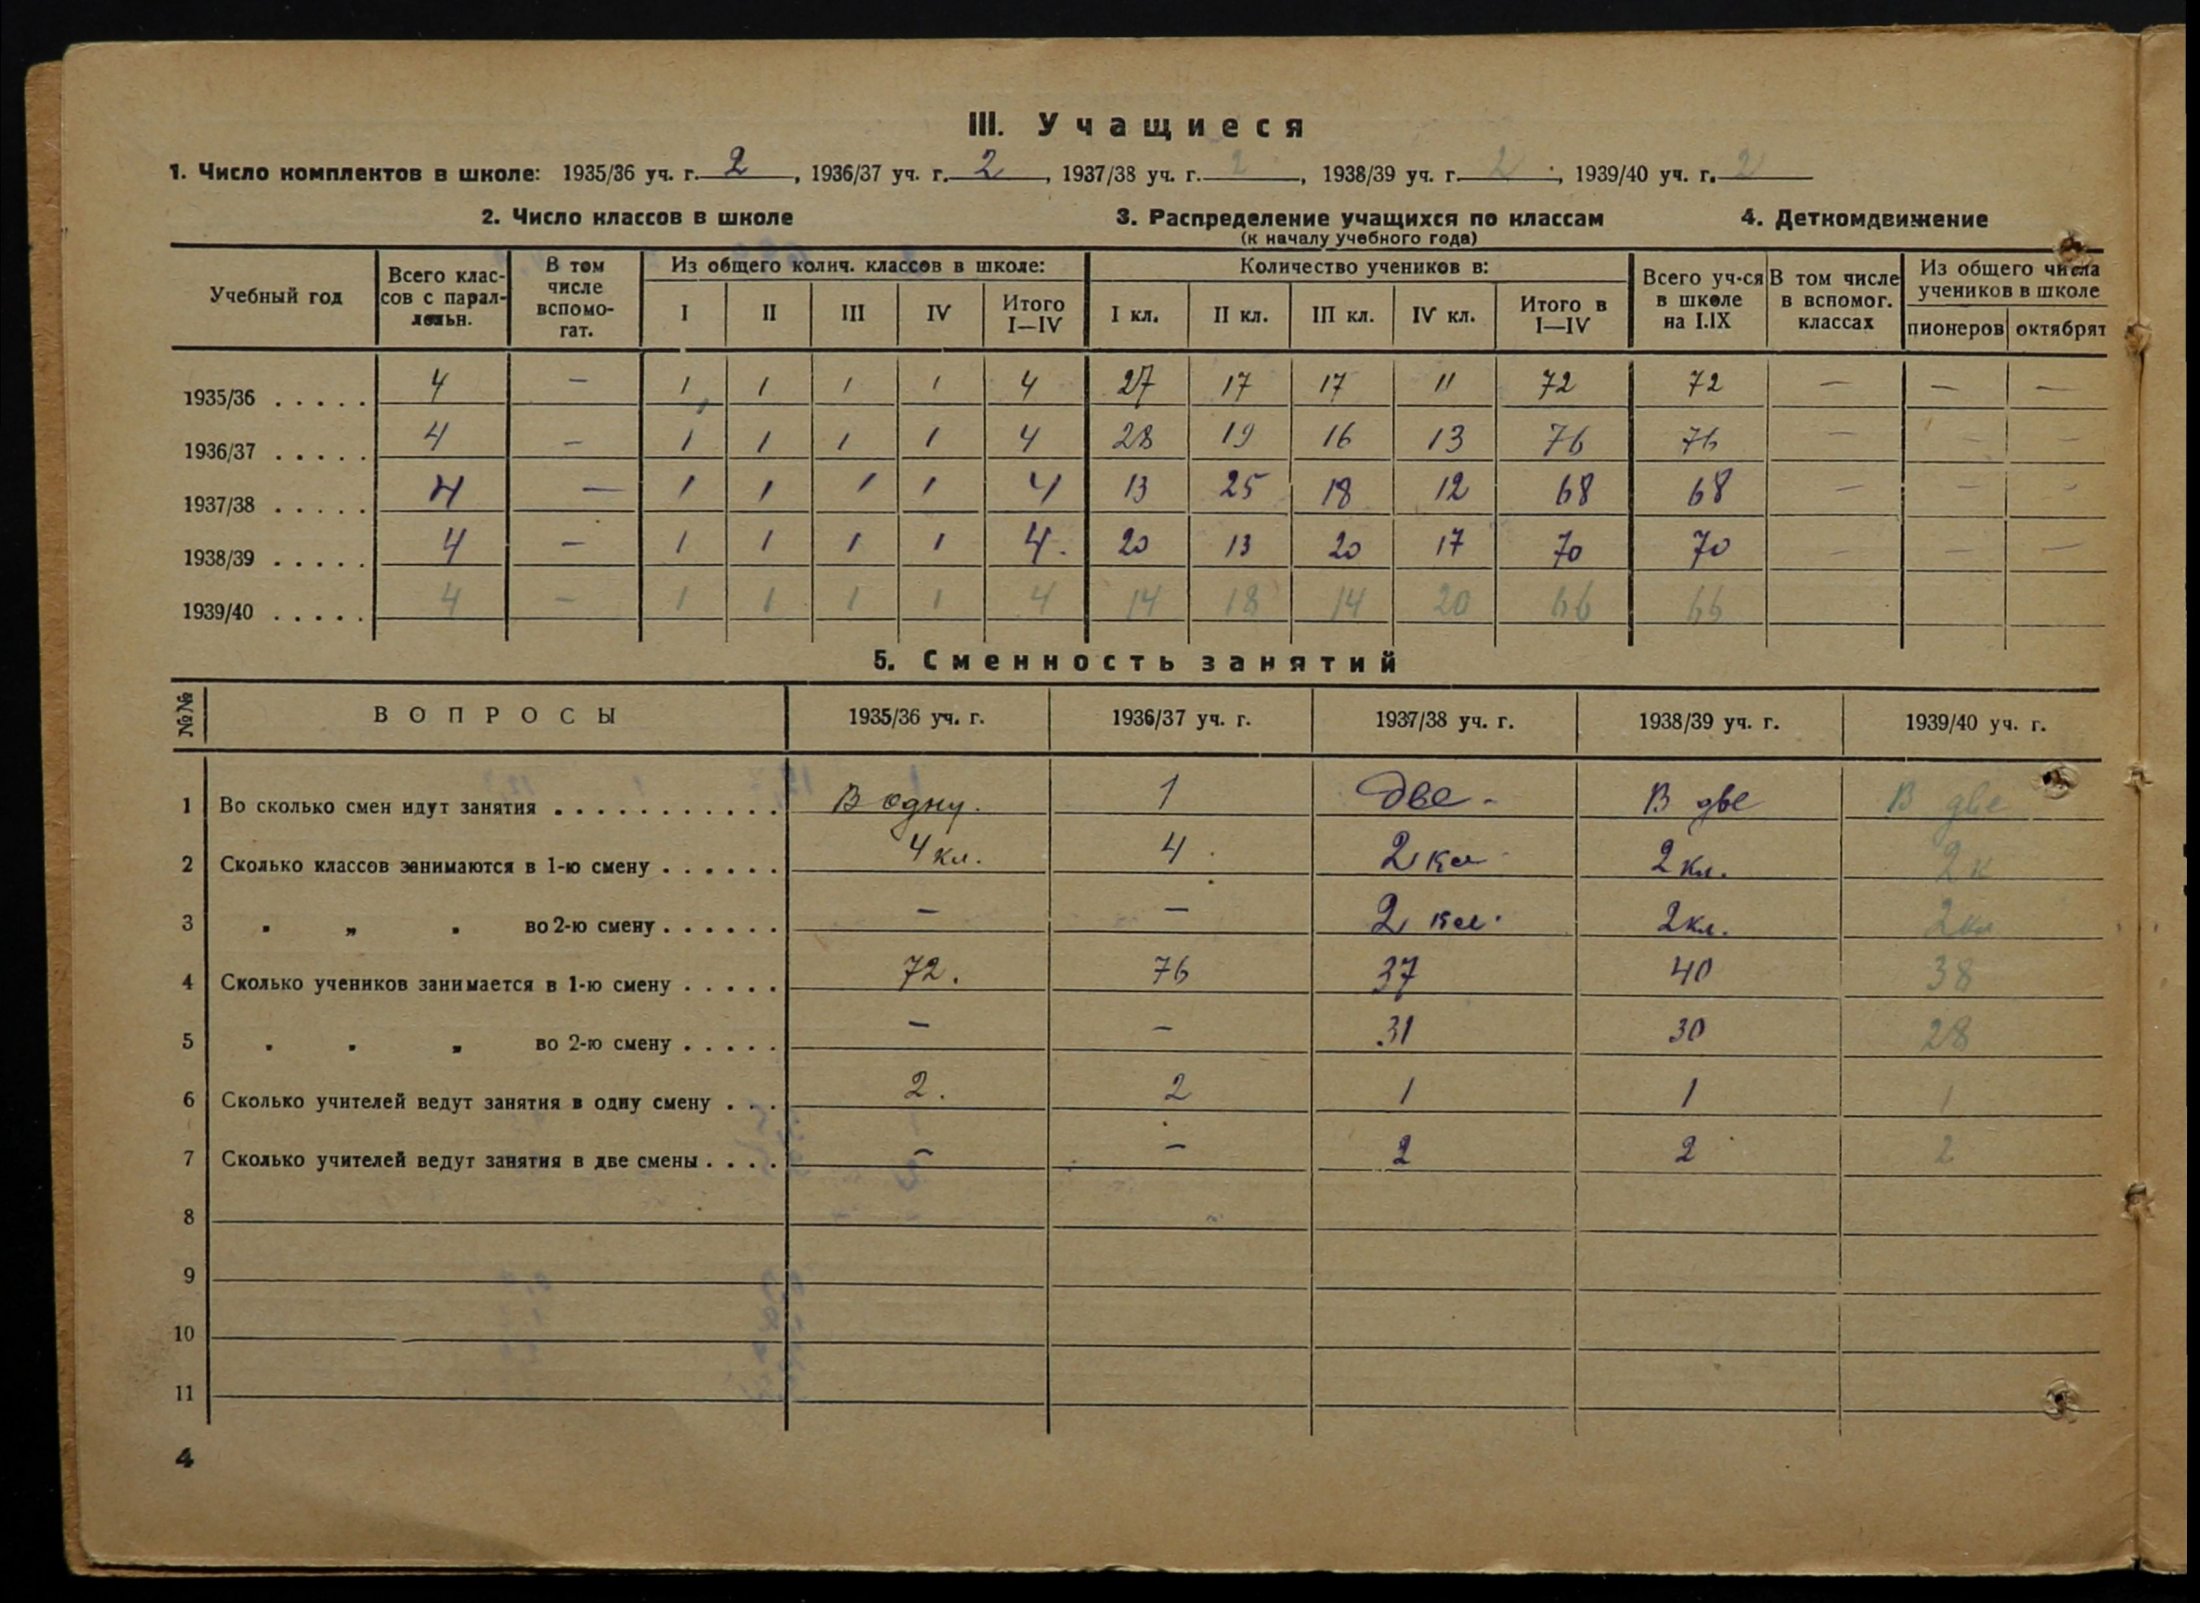 III. Учащиеся
1. Число комплектов в школе: 1935/36 уч. г. 2, 1936/37 уч. г. 2, 1937/38 уч. г. 2, 1938/39 уч. г. 2, 1939/40 уч. г. 2
2. Число классов в школе 3. Распределение учащихся по классам 4. Деткомдвижение
(к началу учебного года)
Учебный год Всего классов с параллельн. В том числе вспомогат. Из общего колич. классов в школе: Количество учеников в: Всего уч-ся в школе на I.IX В том числе в вспомог. классах Из общего числа учеников в школе
I II III IV Итого I—IV I кл. II кл. III кл. IV кл. Итого в I—IV пионеров октябрят
1935/36 . . . . . 4 — 1 1 1 1 4 27 17 17 11 72 72 — — —
1936/37 . . . . . 4 — 1 1 1 1 4 28 19 16 13 76 76 — — —
1937/38 . . . . . 4 — 1 1 1 1 4 13 25 18 12 68 68 — — —
1938/39 . . . . . 4 — 1 1 1 1 4. 20 13 20 17 70 70 — — —
1939/40 . . . . . 4 — 1 1 1 1 4 14 18 14 20 66 66
5. Сменность занятий
№№ ВОПРОСЫ 1935/36 уч. г. 1936/37 уч. г. 1937/38 уч. г. 1938/39 уч. г. 1939/40 уч. г.
1 Во сколько смен идут занятия . . . . . . . . . . . В одну. 1 две - В две В две
2 Сколько классов занимаются в 1-ю смену . . . . . . 4 кл. 4 2 кл 2 кл. 2 к
3 „ „ „ во 2-ю смену . . . . . . — — 2 кл. 2 кл. 2 кл
4 Сколько учеников занимается в 1-ю смену . . . . . 72. 76 37 40 38
5 „ „ „ во 2-ю смену . . . . . — — 31 30 28
6 Сколько учителей ведут занятия в одну смену . . . 2. 2 1 1 1
7 Сколько учителей ведут занятия в две смены . . . . — — 2 2 2
8
9
10
11
4